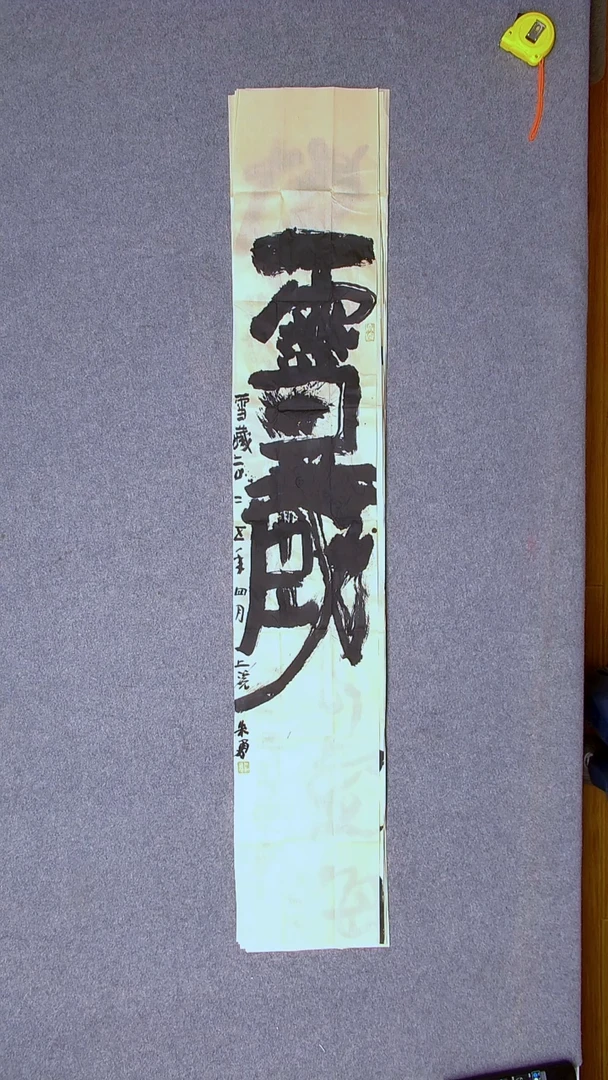 雪藏
雪藏二〇二五年四月上浣朱勇